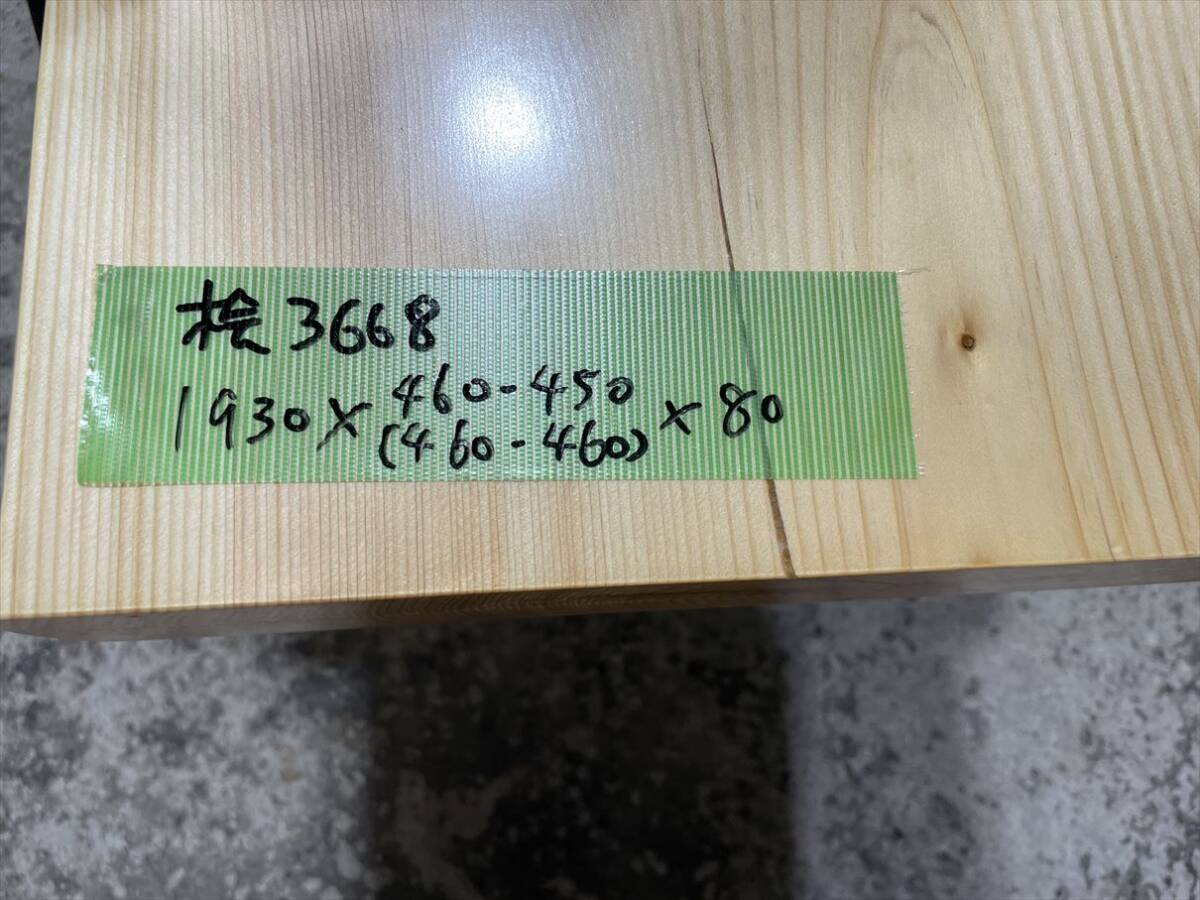 桧3668
1930×460-450×80
(460-460)